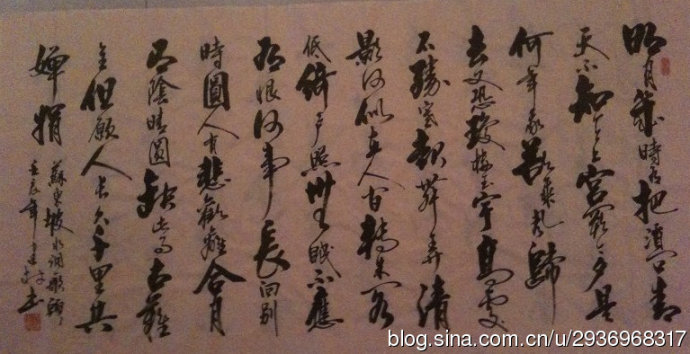 明月幾時有把酒问青
天不知天上宮闕今夕是
何年我欲乘風歸
去又恐瓊樓玉宇高處
不勝寒起舞弄清
影何似在人间轉朱阁
低綺户照無眠不應
有恨何事長向别
時圓人有悲歡離合月
有陰晴圓缺此事古難
全但願人長久千里共
嬋娟
蘇東坡水調歌頭
壬辰年書
blog.sina.com.cn/u/2936968317